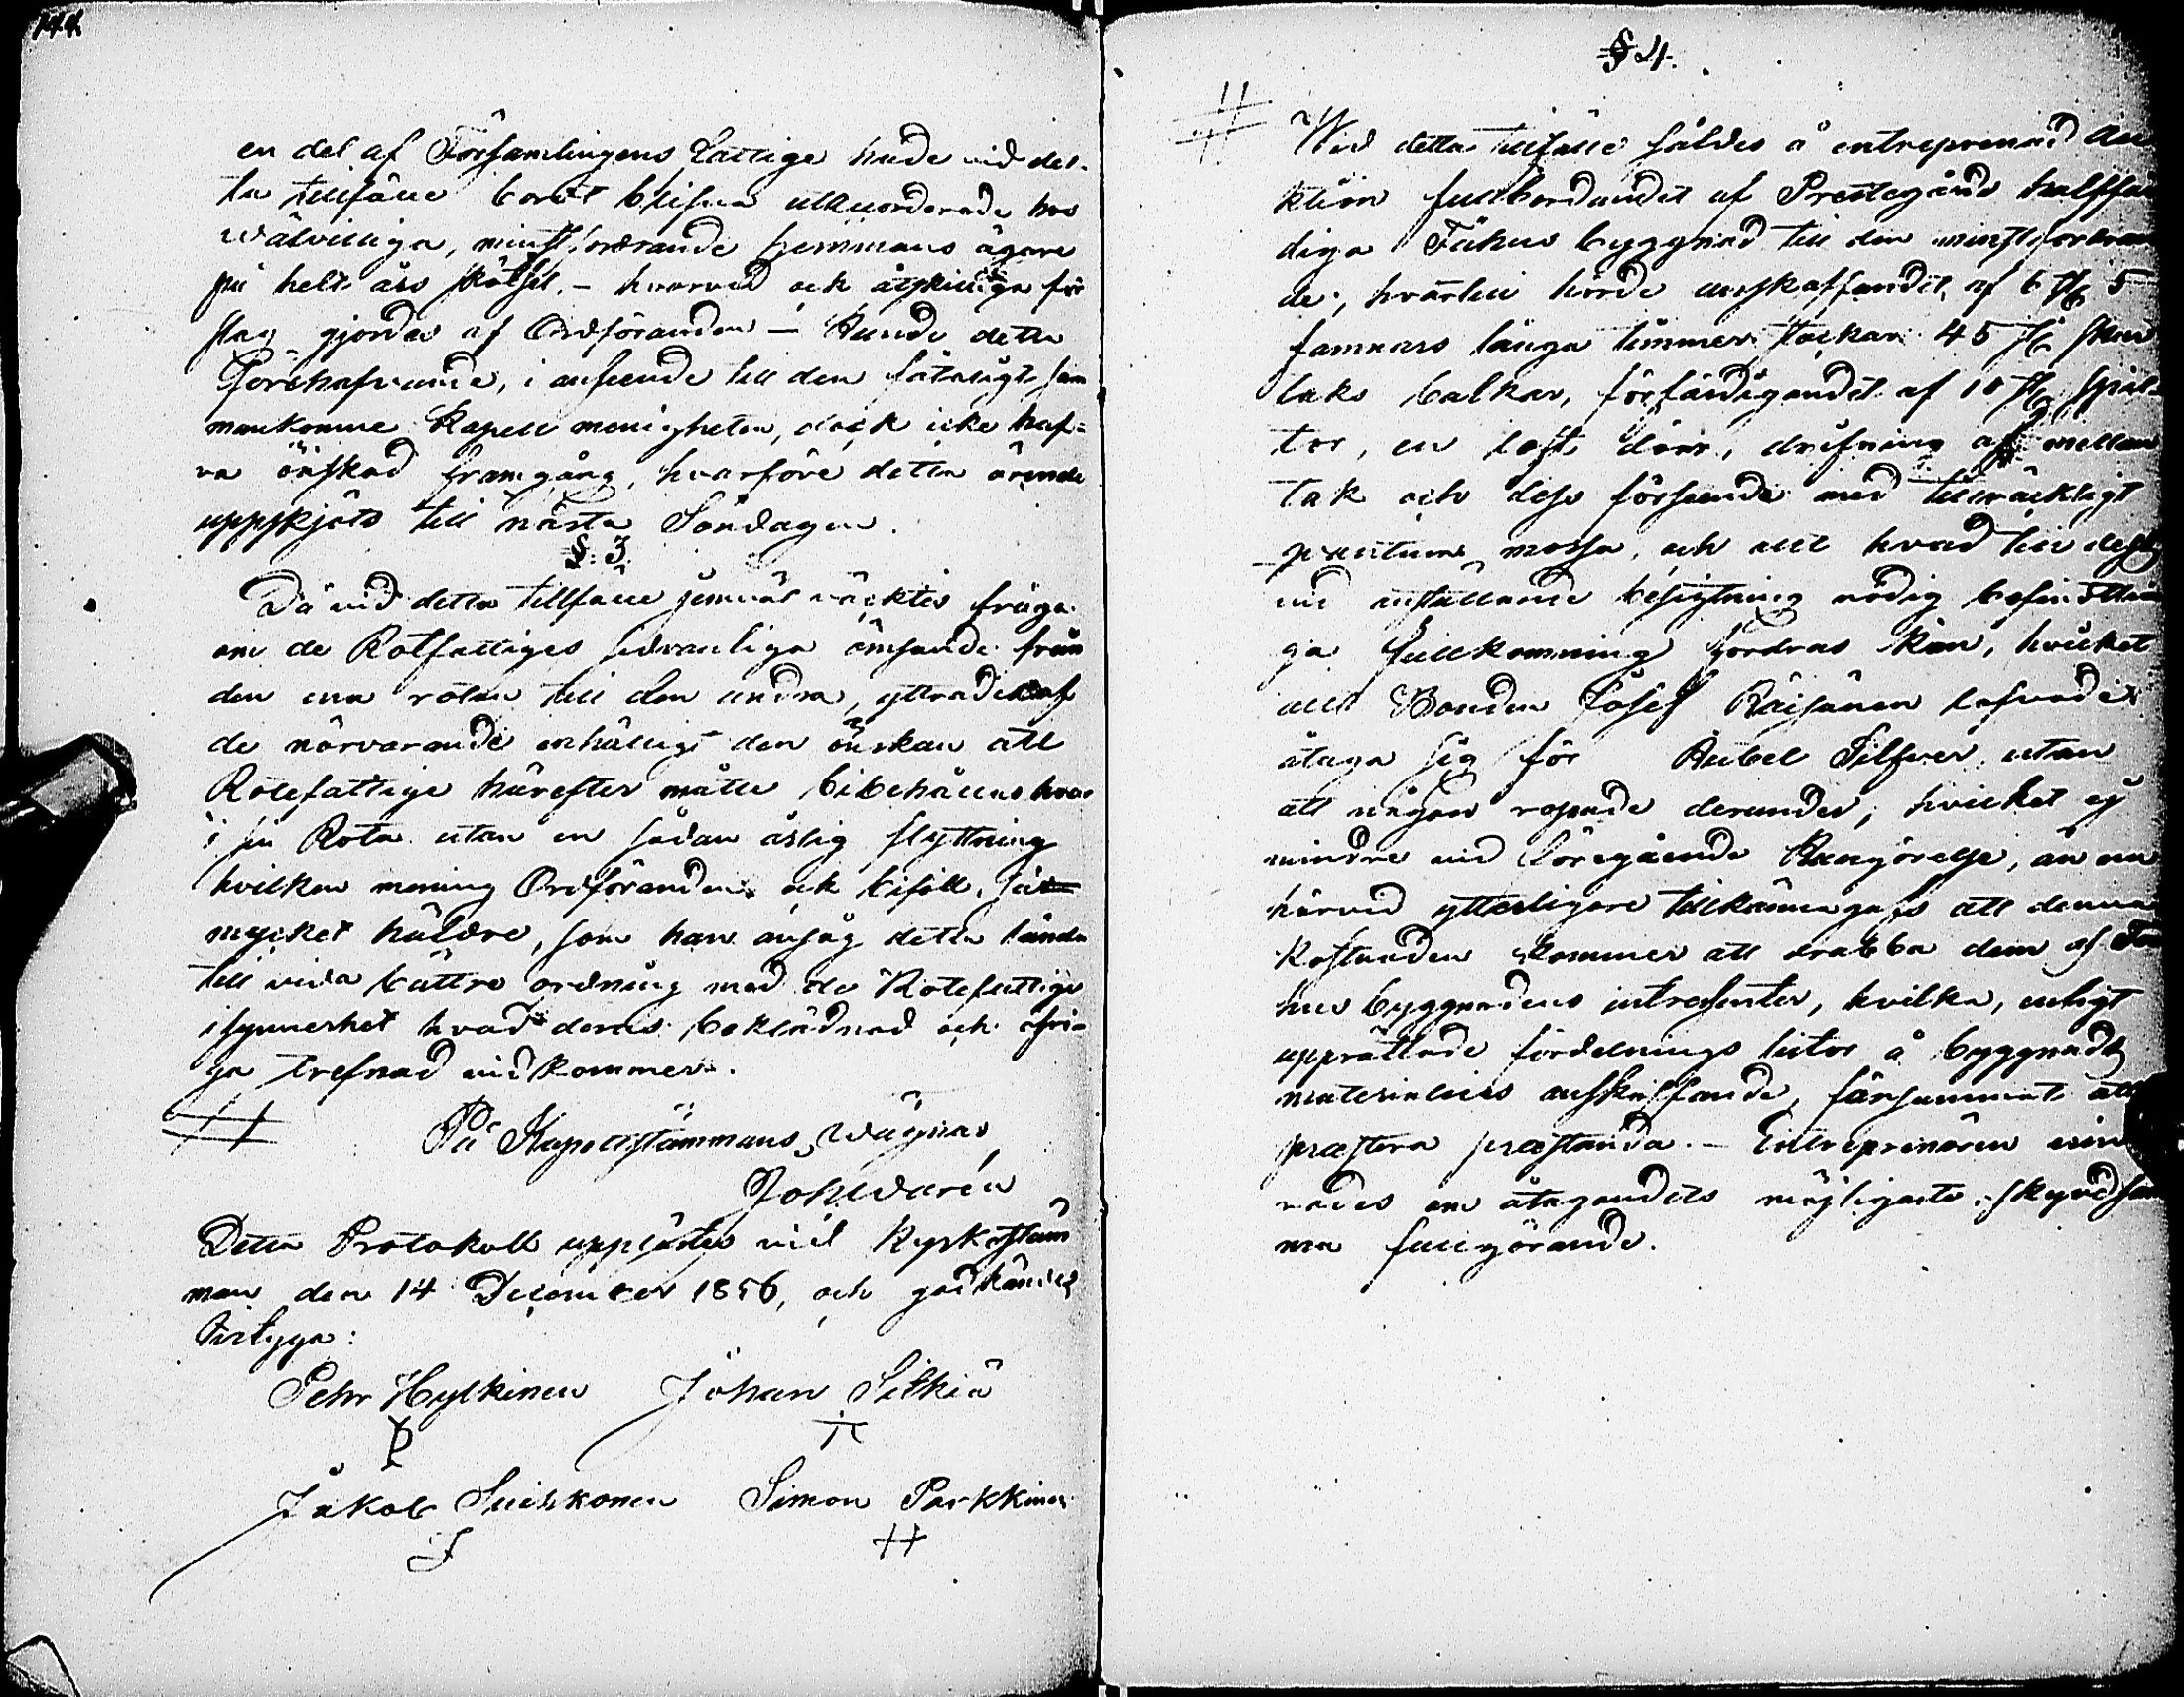 144.
en del af Församlingens fattige hade vid det-
ta tillfälle bordt blifva utackorderade hos
wälvilliga, minst fordrande hemmans ägare
på helt års skötsel, – hvarvid ock åtskilliga för
slag gjordes af Ordföranden – Kunde detta
Förehafvande, i anseende till den fåtaligt sam
mankomne Kapell menigheten, dock icke haf-
va önskad framgång, hvarföre detta ärende
uppskjöts till nästa Söndagen.
§. 3.
Då vid detta tillfälle jemväl väcktes fråga
om de Rotfattiges sedvanliga ömsande från
den ena rotan till den andra, yttrades af
de närvarande enhälligt den önskan att
Rotefattige härefter måtte bibehållas hvar
i sin Rota utan en sådan årlig flyttning
hvilken mening Ordföranden ock biföll, så
mycket häldre, som han ansåg detta lända
till vida bättre ordning med de Rotefattige
isynnerhet hvad deras beklädnad och öfri-
ga trefnad vidkommer.
På Kapellstämmans wägnar
Joh Warén
Detta Protokoll upplästes vid Kyrkostäm
man den 14 December 1856, och godkändes
betyga:
Pehr Hylkinen Johan Silkiä
Jakob Suihkonen Simon Parkkinen
§ 4.
Wid detta tillfälle såldes å entreprenad Au
ktion fullbordandet af Prestegårds halffär
diga Fähus byggnad till den minst fordran
de, hvartill hörde anskaffandet af 6 st 5
famnars långa timmer stockar 45 st
taks balkar, förfärdigandet af 10 st spil-
tor, en loft dörr, drifning af mellan
tak och dess förseende med tillräckligt
quantum mossa, och allt hvad till dess
vid anställande besigtning nödig befinttli
ga fullkomning fordras kan, hvilket
allt Bonden Josef Räisänen lofvade
åtaga sig för Rubel Silfver utan
att någon ropade derunder, hvilket ej
mindre vid föregående Kungörelse, än nu
härvid ytterligare tillkännagafs att denna
kostnaden kommer att drabba dem af Fä
hus byggnadens intressenter, hvilka, enligt
upprättade fördelnings listor å byggnads
materialiers anskaffande, försummat att
præstera præstanda. – Entreprenören
nades om åtagandets möjligaste skyndsam
ma fullgörande.